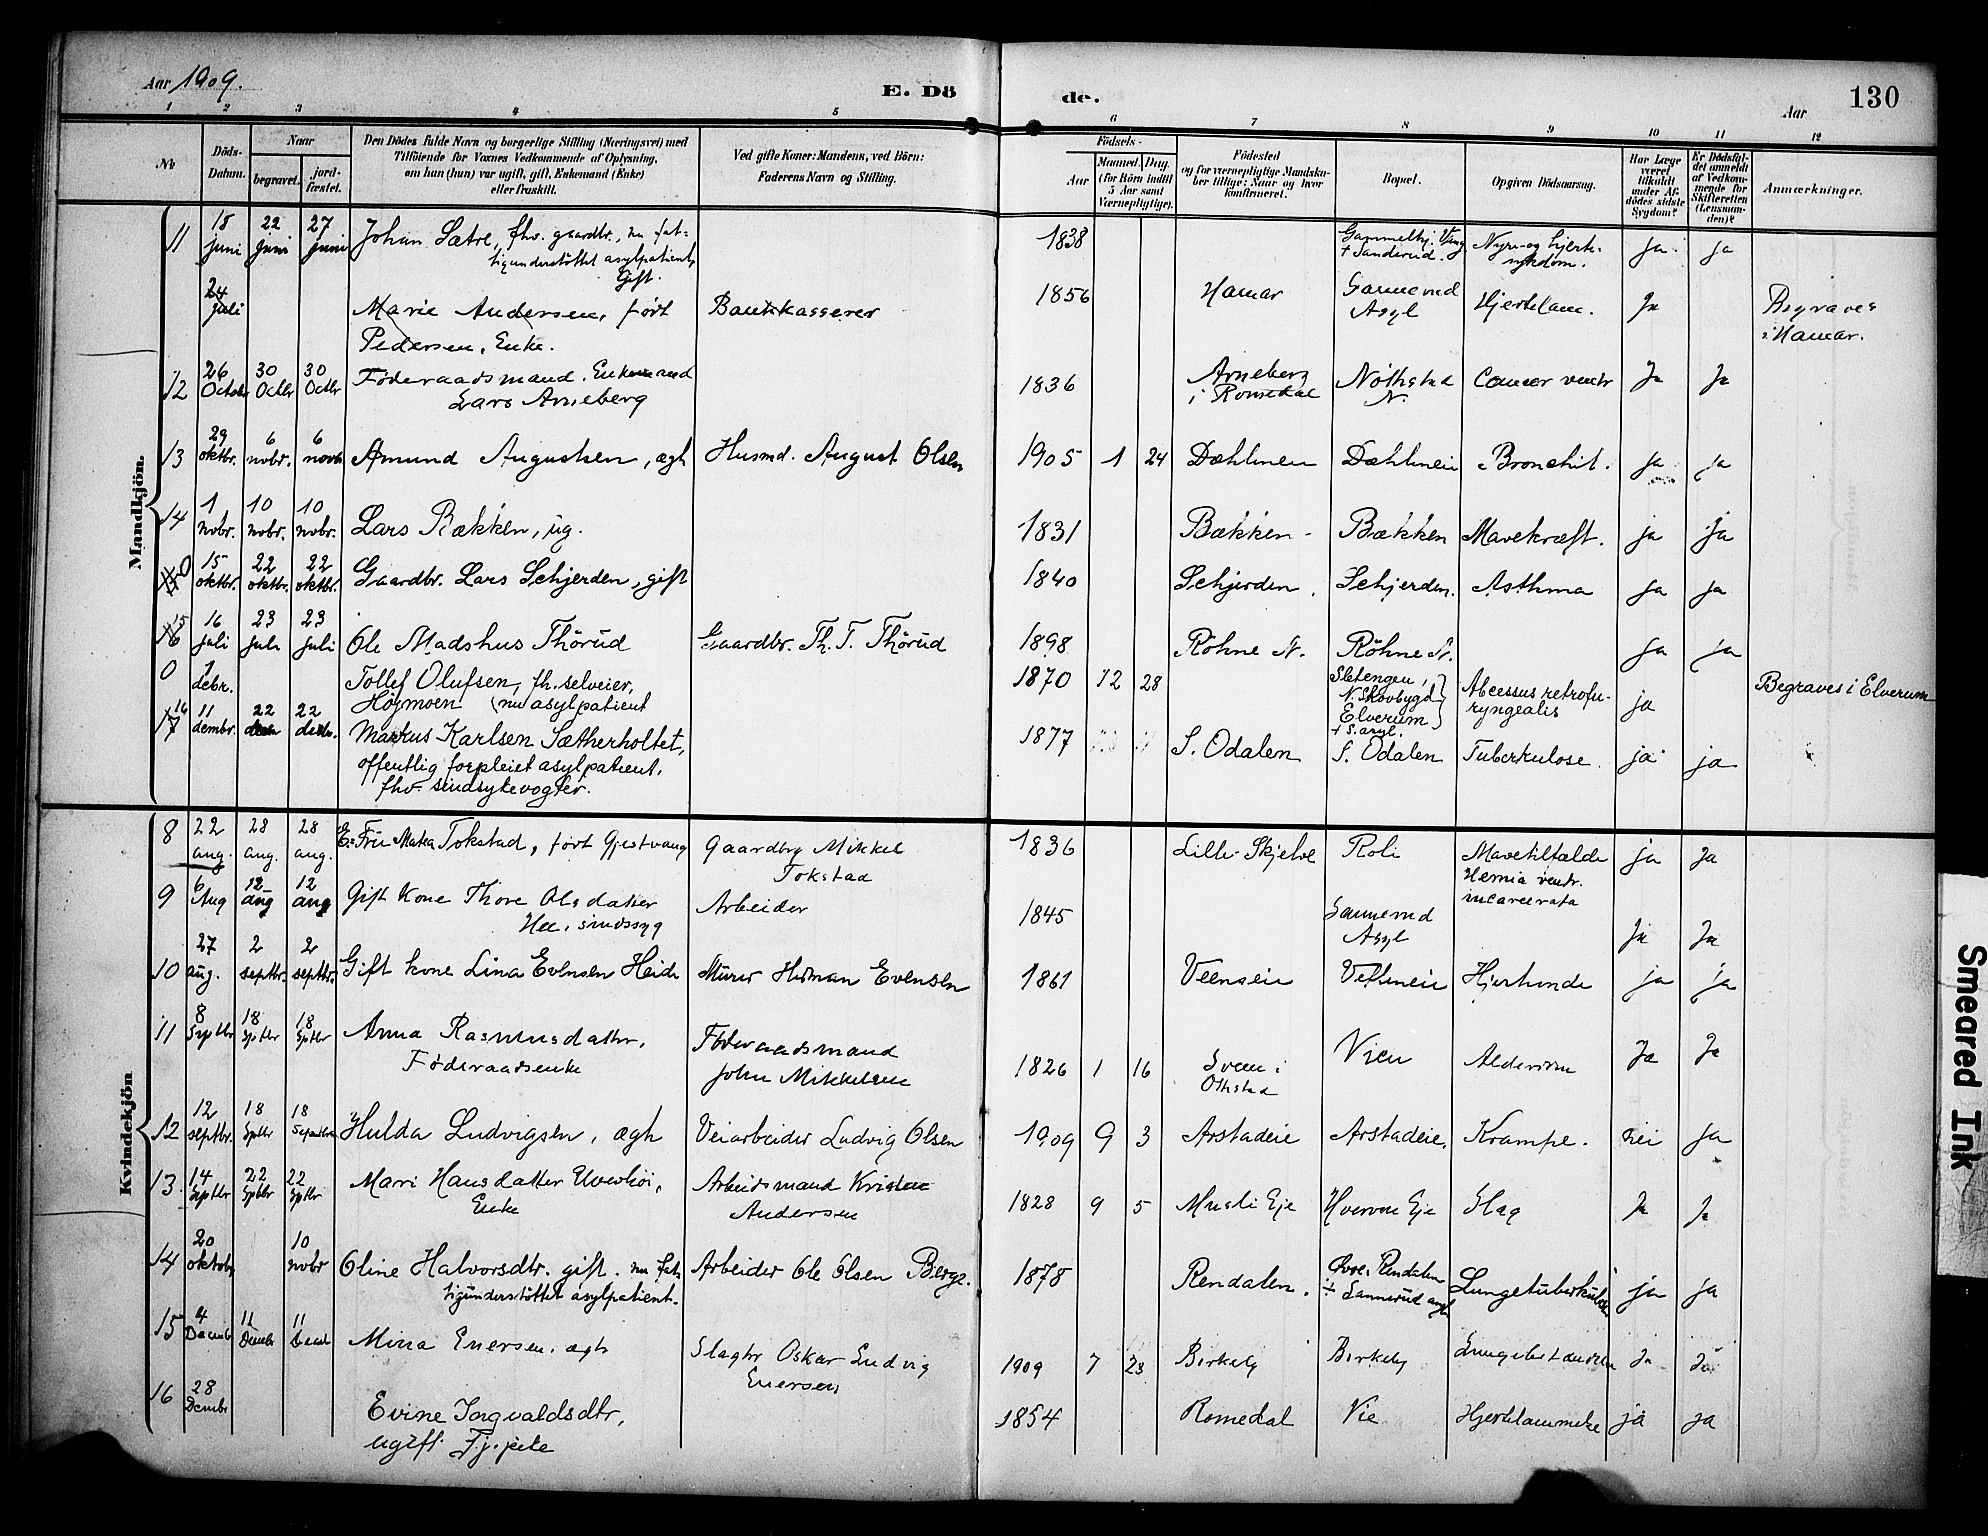 Aar 1909.
E. Dö
de.
Aar
130
1 2 3 4 5 6 7 8 9 10 11 12
No
Döds-Datum.
Naar
begravet.
jordfæstet.
Den Dödes fulde Navn og borgerlige Stilling (Næringsvei) med
Tilföiende for Voxnes Vedkommende af Oplysning,
om han (hun) var ugift, gift, Enkemand (Enke)
eller fraskilt.
Ved gifte Koner: Mandens, ved Börn:
Faderens Navn og Stilling.
Födsels-
Aar
Maaned. Dag.
(for Börn indtil
5 Aar samt
Værnepligtige).
Födested
og for værnepligtige Mandskaber tillige: Naar og hvor
konfirmeret.
Bopæl.
Opgiven Dödsaarsag.
Har Læge
været
tilkaldt
under Afdödes sidste
Sygdom?
Er Dödsfaldet anmeldt
af Vedkommende for
Skifteretten
(Lensmanden)?
Anmærkninger.
Mandkjön.
11 18 juni 22 juni 27 juni Johan Sætre, fhv. gaardbr., nu fat- 1838 Gammelhj. Vang Nyre- og hjerte- ja ja
tigunderstøttet asylpatient, † Sanderud. sykdom.
Gift.
24 juli Marie Andersen, født Bankkasserer 1856 Hamar Sannerud Hjertelam. Ja Begraves
Pedersen, Enke. Asyl i Hamar.
12 26 Octobr 30 Octbr 30 Octbr Føderaadsmand, Enkemand 1836 Arneberg Nøthstad Cancer ventr Ja Ja
Lars Arneberg i Romedal N.
13 29 oktbr. 6 nobr. 6 novb. Amund Augustsen, ægt Husmd. August Olsen 1905 1 24 Dæhlineie Dæhlineie Bronchit. ja ja
14 1 nobr. 10 nobr. 10 nobr. Lars Bækken, ug. 1831 Bækken Bækken Mavekræft. ja Ja
0 15 oktbr. 22 oktbr. 22 oktbr. Gaardbr. Lars Schjerden, gift 1840 Schjerden. Schjerden. Asthma ja ja
15 16 juli 23 juli 23 juli Ole Madshus Thörud Gaardbr. Th. T. Thörud 1898 Röhne N. Röhne N. ja ja
0 7 debr. Tollef Olufsen, fh. selveier, 1870 12 28 Sletengen, Abcessus retrofa- ja Begraves i Elverum
Højmoen (nu asylpatient N. Skovbygd ryngealis
Elverum
† S. asyl.
16 17 11 dembr. 22 22 debr. Markus Karlsen Sætherholtet, 1877 S. Odalen S. Odalen Tuberkulose. ja ja
offentlig forpleiet asylpatient,
fhv. sindsykevogter.
Kvindekjön
8 22 aug. 28 aug. 28 aug. E. Fru Mathea Tokstad, født Gjestvang Gaardbr Mikkel 1836 Lille-Skjelve Roli Mavetilfælde ja Ja
Tokstad Hernia ventr.
incarcerata
9 6 Aug 12 aug 12 aug Gift Kone Thore Olsdatter Arbeider 1845 Sannerud Ja Ja
sindssyg Asyl
10 27 aug. 2 septbr. 2 septbr. Gift kone Lina Evensen Heide Murer Herman Evensen 1861 Veenseie Vethneie Hjerteonde ja ja
11 8 Septbr 18 Septbr 18 Septbr Anna Rasmusdatter, Føderaadsmand 1826 1 16 Sveen i Vien Alderdom Ja Ja
Føderaadsenke John Mikkelsen Othstad
12 12 septbr. 18 Septbr 18 Septembr Hulda Ludvigsen, ægt Veiarbeider Ludvig Olsen 1909 9 3 Arstadeie Arstadeie, Krampe. nei ja
13. 14 Septbr 22 Septbr 22 Septbr Mari Hansdatter Uverhoi, Arbeidsmand Kristen 1828 9 5 Musli Eje Hverven Eje Slag Ja Ja
Enke Andersen
14 20 oktobr 10 nobr Oline Halvorsdtr. gift. nu fat- Arbeider Ole Olsen Berge. 1878 Rendalen. Øvre Rendalen Lungetuberkulose ja ja
tigunderstøttet asylpatient. † Sannerud asyl
15 4 Decembr 11 Decmbr 11 Decmbr Mina Enersen, ægte Slagtr Oskar Ludvig 1909 7 23 Birkely Birkely Lungebetændelse Ja Ja
Enersen
16 28 Dcembr Evine Ingvaldsdtr, 1854 Romedal Vie Hjertelammelse ja ja
ugift Tj.pike
Smeared Ink